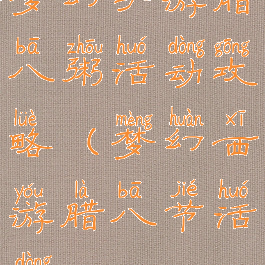 bā zhōu huó dòng gōng
八粥活动攻
lüè mèng huàn xī
略(梦幻西
yóu là bā jié huó
游腊八节活
dòng